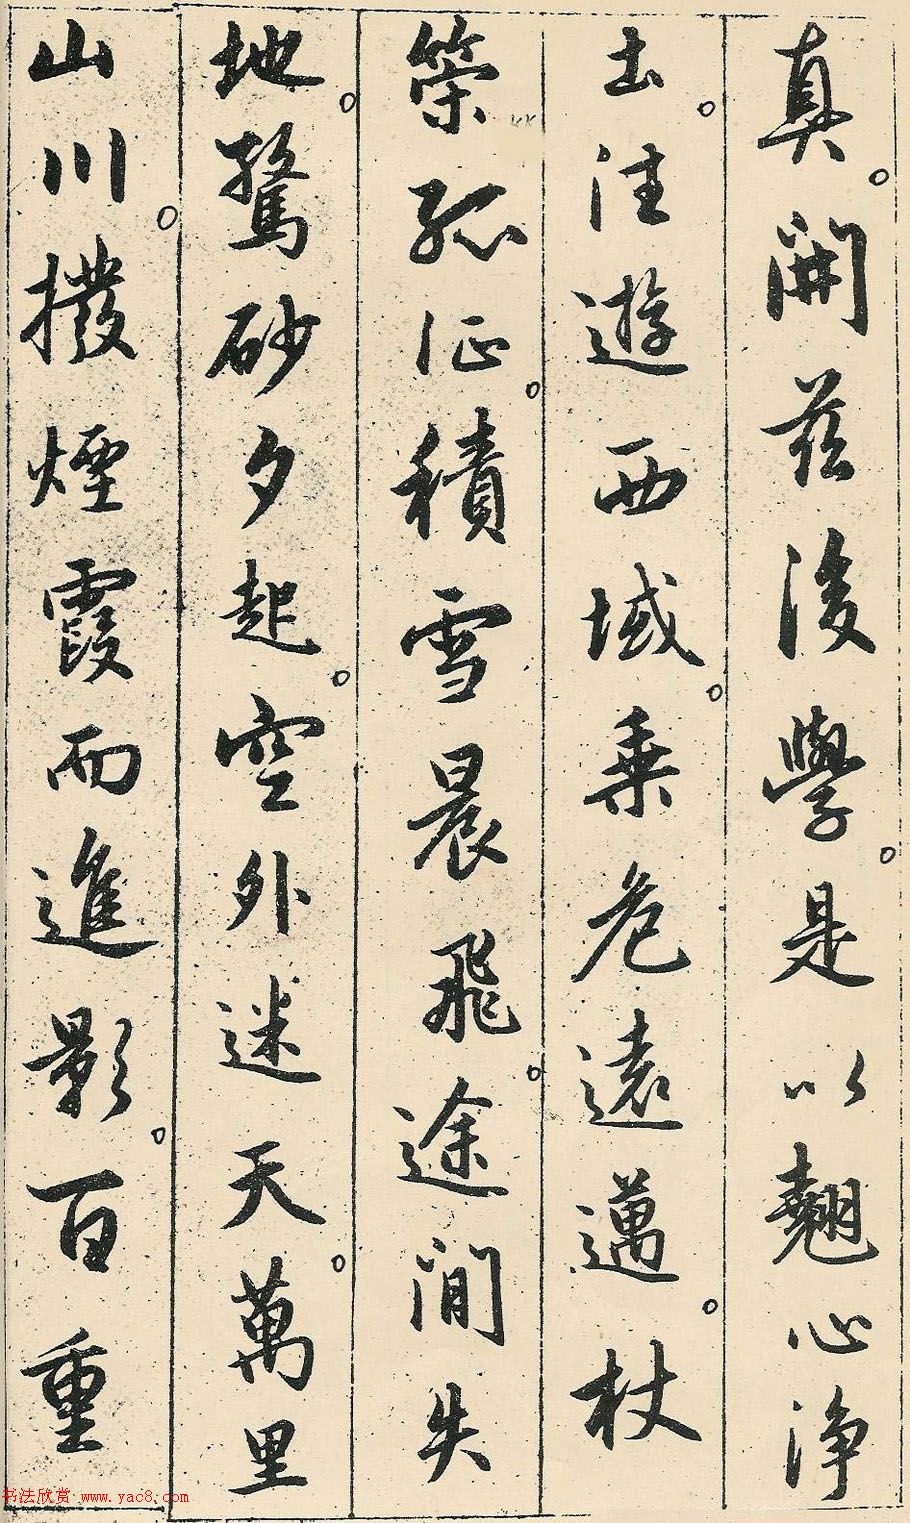 真。開茲後學。是以翹心淨
土。往遊西域。乗危遠邁。杖
策孤征。積雪晨飛。途閒失
地。驚砂夕起。空外迷天。萬里
山川。撥煙霞而進影。百重
书法欣赏 www.yac8.com